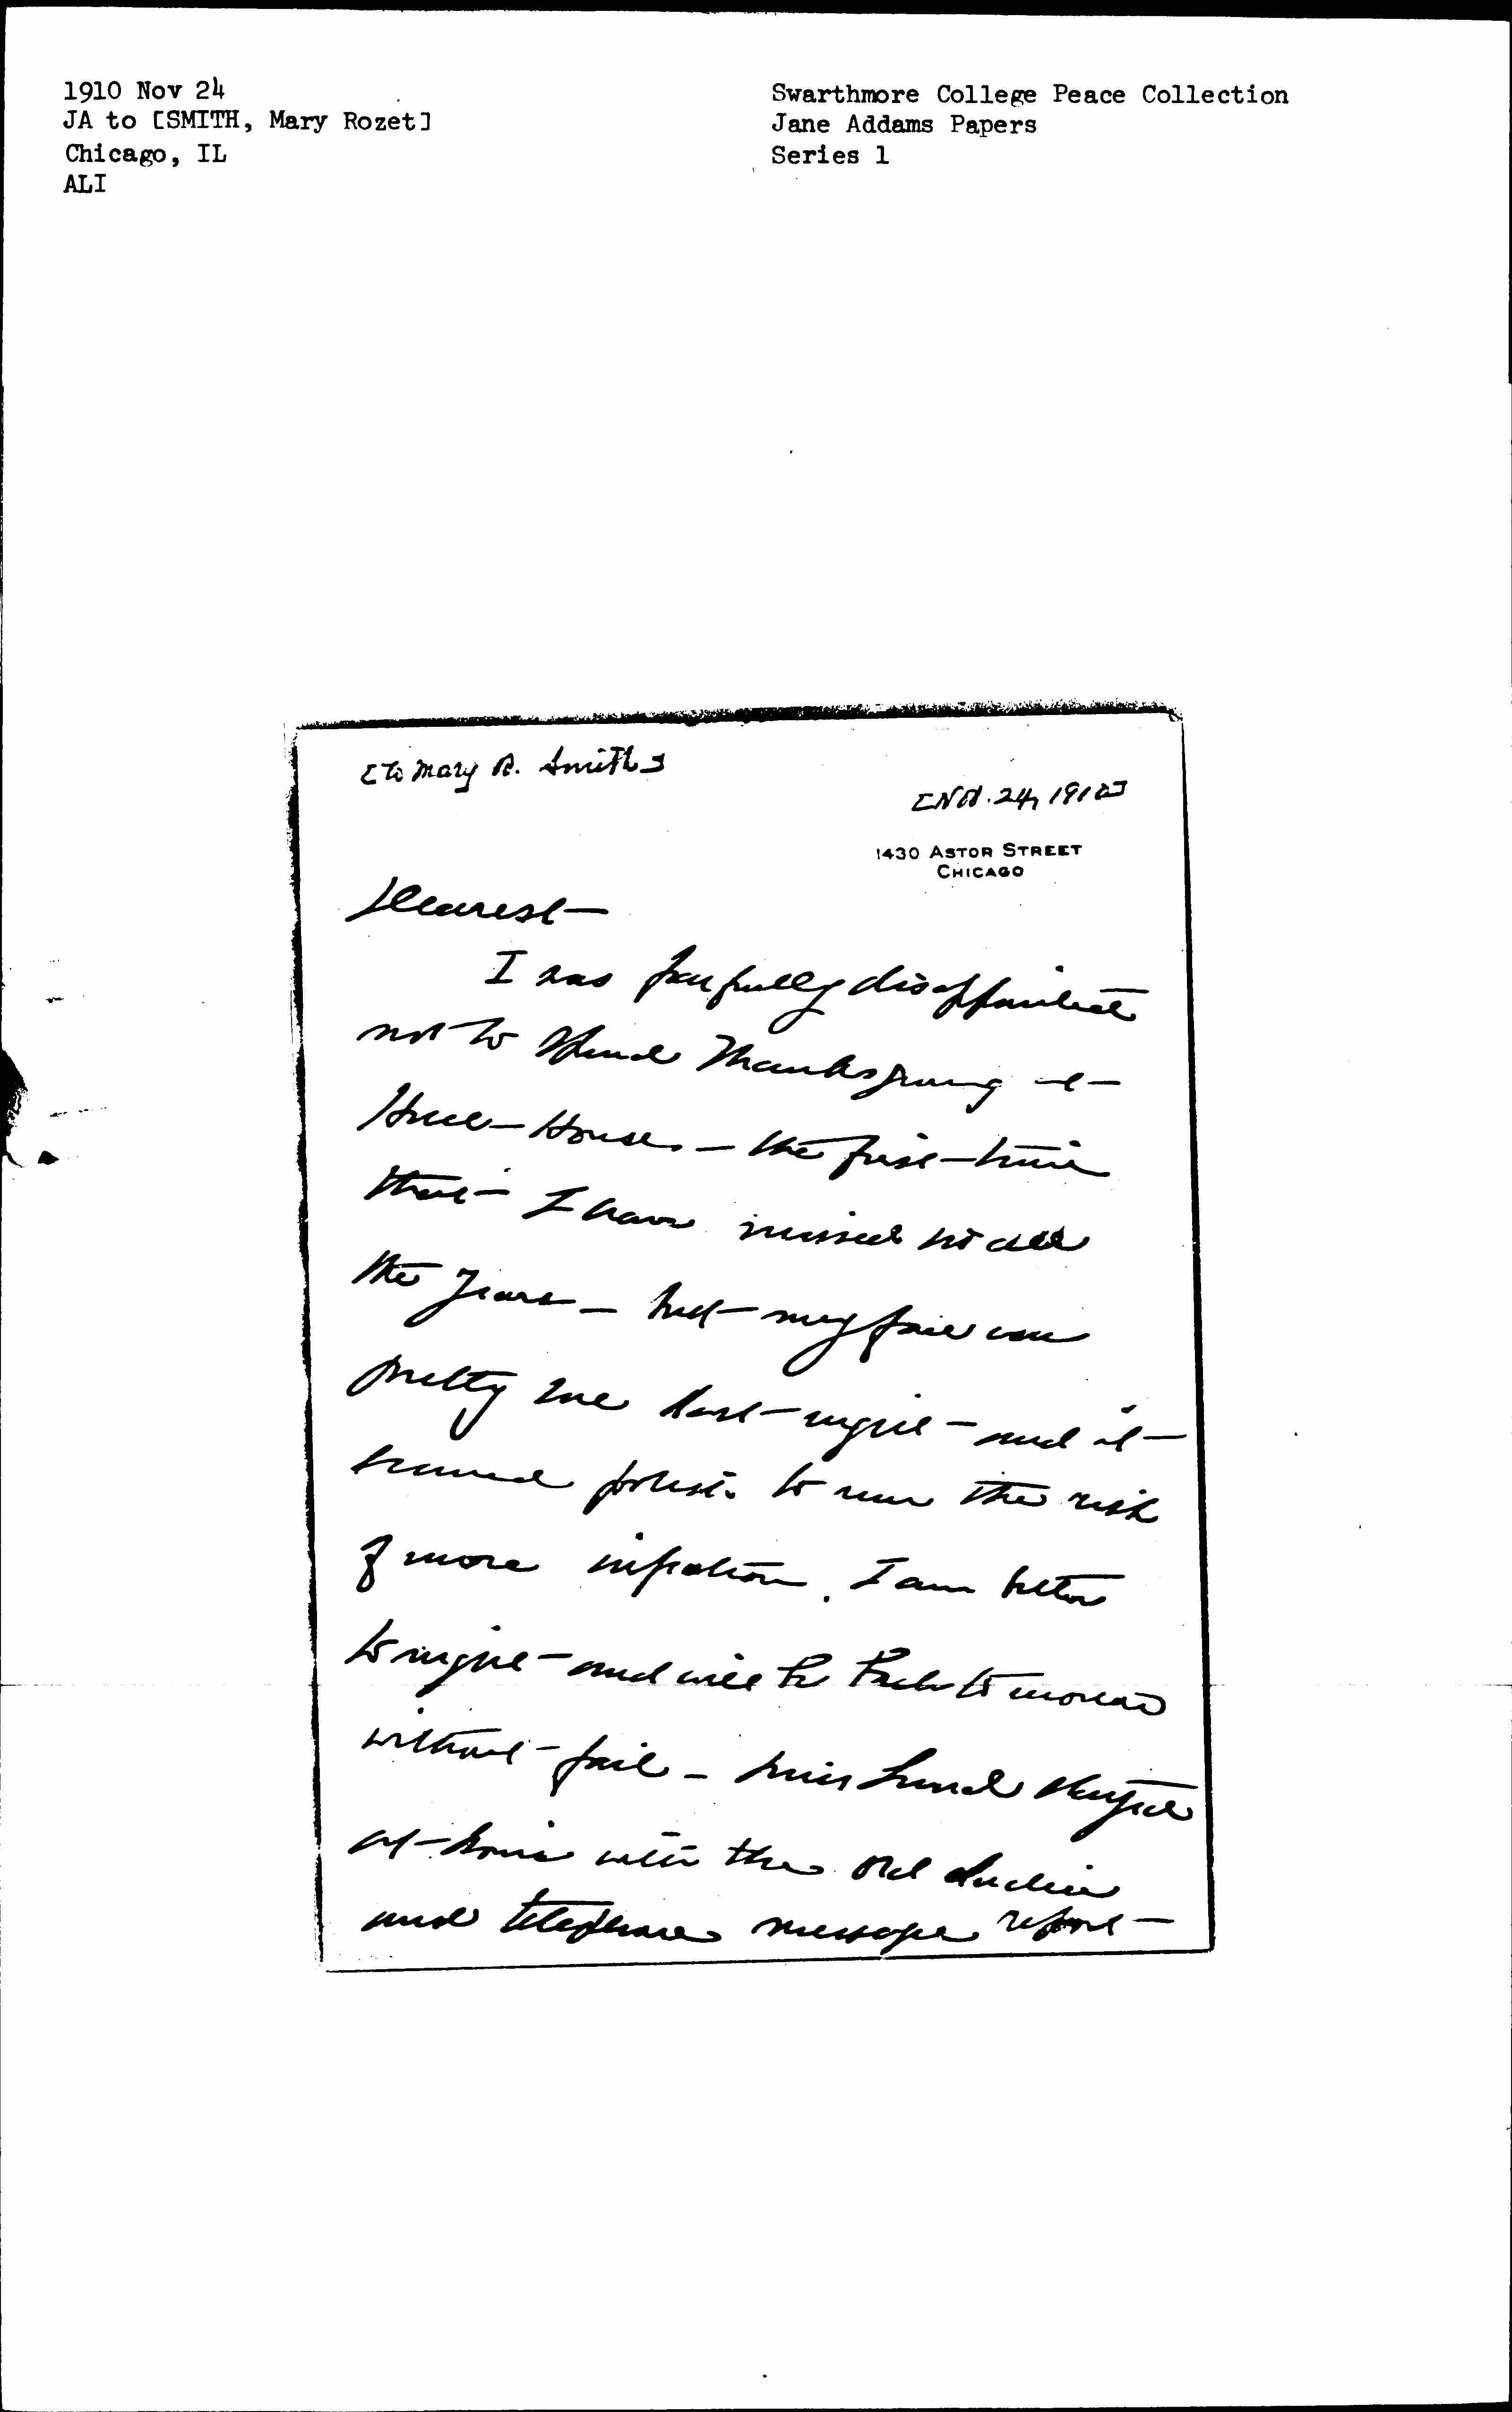 1910 Nov 24
JA to [SMITH, Mary Rozet]
Chicago, IL
ALI
Swarthmore College Peace Collection
Jane Addams Papers
Series 1
[to Mary R. Smith]
[Nov. 24, 1910]
1430 ASTOR STREET
CHICAGO
Dearest—
I was fearfully disappointed
not to spend Thanksgiving at
Hull-House. — the first time
that I have missed in all
the years — but my face was
pretty one last night and it
seemed foolish to run the risk
of more infection. I am better
tonight and will be back tomorrow
without fail — Miss Lund stayed
at home with the old ladies
and telephone message report